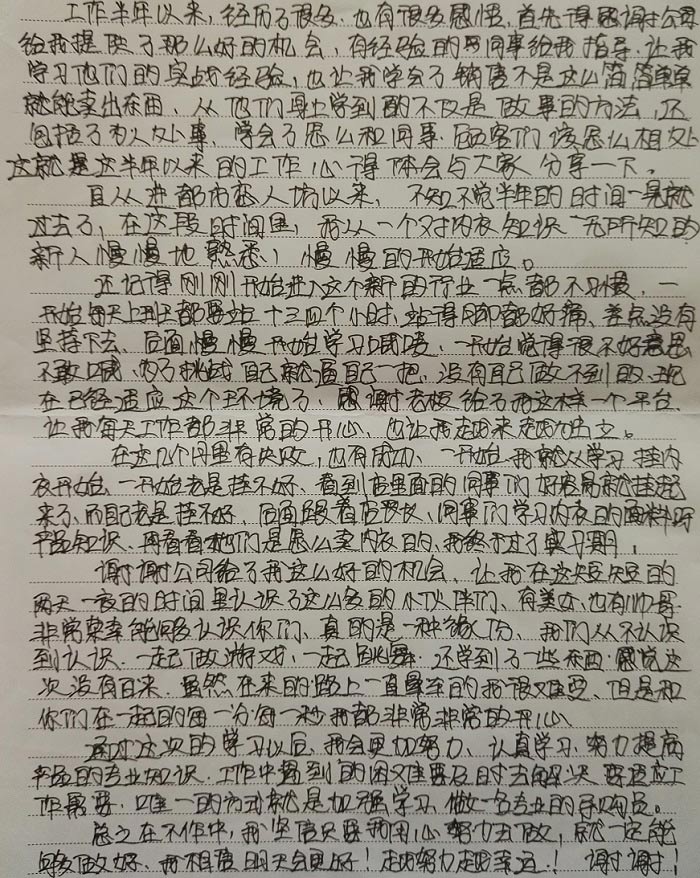 工作半年以来，经历了很多，也有很多感悟，首先得感谢公司
给我提供了那么好的机会，有经验的同事给我指导，让我
学习他们的实战经验，也让我学会了销售不是这么简简单单
就能卖出东西，从他们身上学到的不仅是做事的方法，还
包括了为人处事，学会了怎么和同事、后面客们该怎么相处
这就是这半年以来的工作心得体会与大家分享一下。
自从进都市恋人坊以来，不知不觉半年的时间一晃就
过去了，在这段时间里，我从一个对内衣知识一无所知的
新人慢慢地熟悉，慢慢的开始适应。
还记得刚刚开始进入这个新的行业一点都不习惯，一
开始每天上班都要站十三四个小时，站得脚都好痛、差点没有
坚持下去、后面慢慢开始学习喊唛、一开始觉得很不好意思
不敢喊，为了挑战自己就逼自己一把，没有自己做不到的，现
在已经适应这个环境了，感谢老板给了我这样一个平台、
让我每天工作都非常的开心、也让我越来越出色。
在这几个月里有失败，也有成功、一开始我就从学习挂内
衣开始、一开始老是挂不好、看到店里面的同事们好容易就挂起
来了、而自己老是挂不好、后面跟着店长、同事们学习内衣的面料
产品知识、再看看他们是怎么卖内衣的、我终于过了实习期，
谢谢公司给了我这么好的机会、让我在这短短的
两天一夜的时间里认识了这么多的小伙伴们、有美女、也有帅哥
非常荣幸能够认识你们、真的是一种缘份、我们从不认识
到认识、一起做游戏、一起跳舞、还学到了一些东西，感觉这
次没有白来、虽然在来的路上一直晕车的我很难受、但是和
你们在一起的每一分每一秒我都非常非常的开心、
通过这次的学习以后，我会更加努力、认真学习、努力提高
产品的专业知识、工作中遇到的困难要及时去解决，要适应工
作需要，唯一的方式就是加强学习，做一名专业的导购员。
总之在工作中，我坚信只要我用心努力去做，就一定能
够做好、我相信明天会更好！越努力越幸运！谢谢！